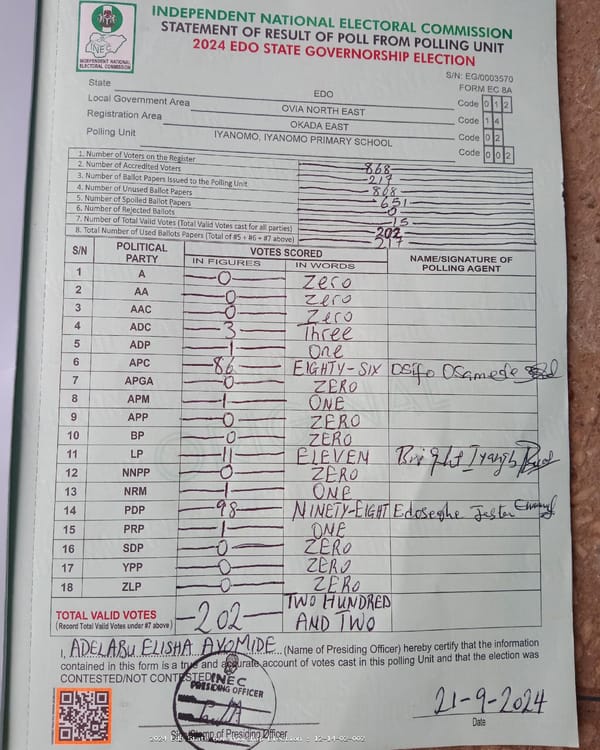 INDEPENDENT NATIONAL ELECTORAL COMMISSION
STATEMENT OF RESULT OF POLL FROM POLLING UNIT
2024 EDO STATE GOVERNORSHIP ELECTION
INEC
INDEPENDENT NATIONAL
ELECTORAL COMMISSION
S/N: EG/0003570
FORM EC 8A
State EDO Code 0 1 2
Local Government Area OVIA NORTH EAST Code 1 4
Registration Area OKADA EAST Code 0 2
Polling Unit IYANOMO, IYANOMO PRIMARY SCHOOL Code 0 0 2
1. Number of Voters on the Register 868
2. Number of Accredited Voters 217
3. Number of Ballot Papers Issued to the Polling Unit 868
4. Number of Unused Ballot Papers 651
5. Number of Spoiled Ballot Papers 0
6. Number of Rejected Ballots 15
7. Number of Total Valid Votes (Total Valid Votes cast for all parties) 202
8. Total Number of Used Ballots Papers (Total of #5 + #6 + #7 above) 217
S/N POLITICAL PARTY VOTES SCORED NAME/SIGNATURE OF POLLING AGENT
IN FIGURES IN WORDS
1 A 0 Zero
2 AA 0 Zero
3 AAC 0 Zero
4 ADC 3 Three
5 ADP 1 One
6 APC 86 EIGHTY-SIX Osifo Osamede
7 APGA 0 ZERO
8 APM 1 ONE
9 APP 0 ZERO
10 BP 0 ZERO
11 LP 11 ELEVEN Bright
12 NNPP 0 ZERO
13 NRM 1 ONE
14 PDP 98 NINETY-EIGHT Edoseghe
15 PRP 1 ONE
16 SDP 0 ZERO
17 YPP 0 ZERO
18 ZLP 0 ZERO
TOTAL VALID VOTES 202 TWO HUNDRED AND TWO
(Record Total Valid Votes under #7 above)
I, ADELABU ELISHA AYOMIDE (Name of Presiding Officer) hereby certify that the information
contained in this form is a true and accurate account of votes cast in this polling Unit and that the election was
CONTESTED/NOT CONTESTED
INEC
PRESIDING OFFICER
21-9-2024
Date
Stamp of Presiding Officer